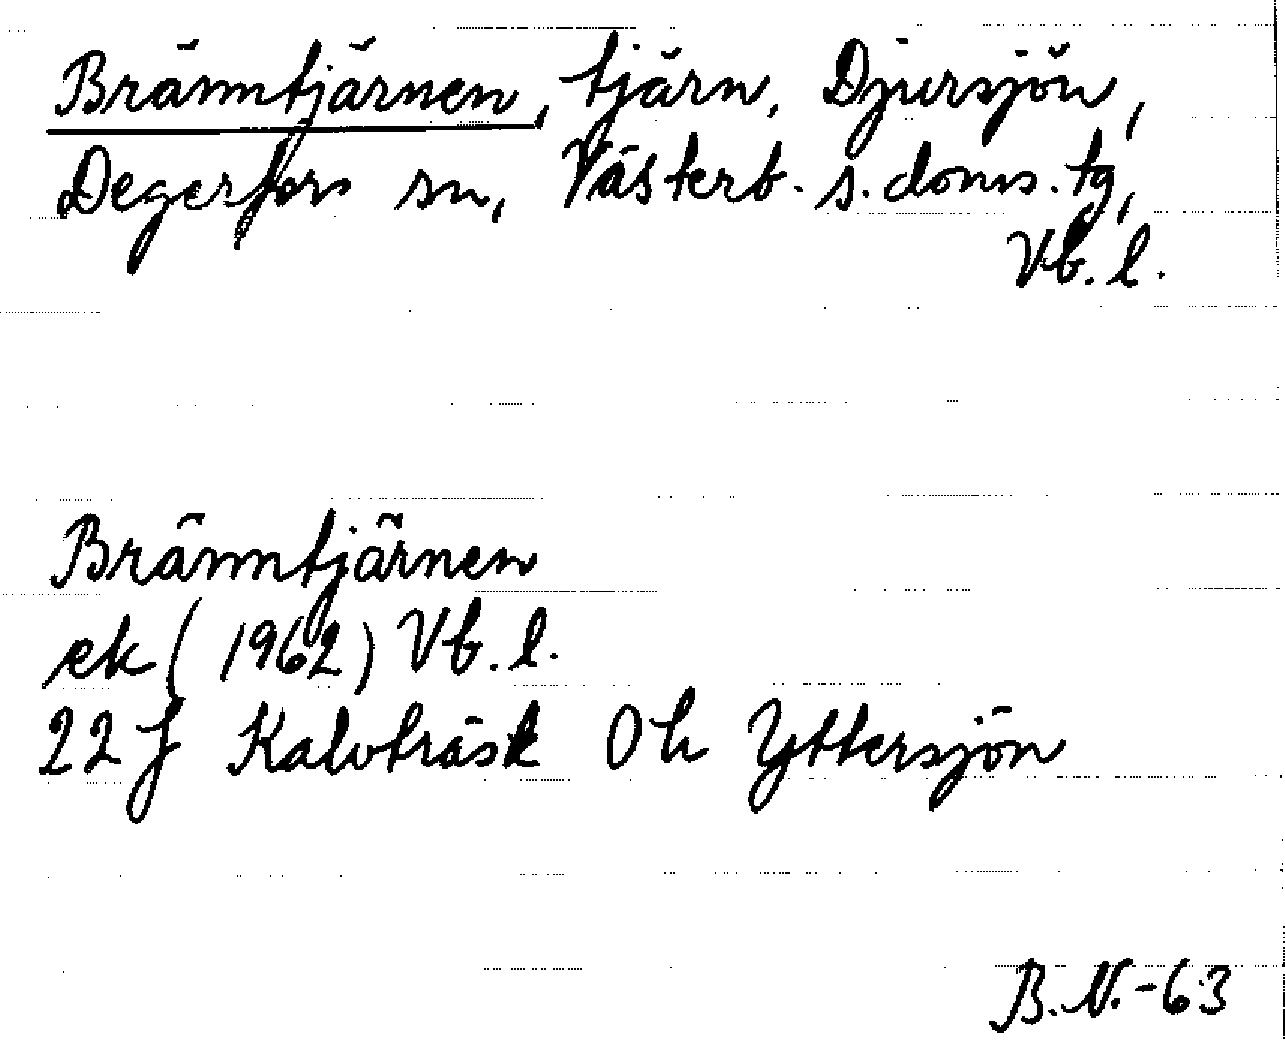 Bränntjärnen, tjärn, Djursjön,
Degerfors sn, Västerb. s. doms. tg,
Vb. l.
Bränntjärnen
ek (1962) Vb. l.
22 J Kalvträsk 0 h Yttersjön
B.N.-63